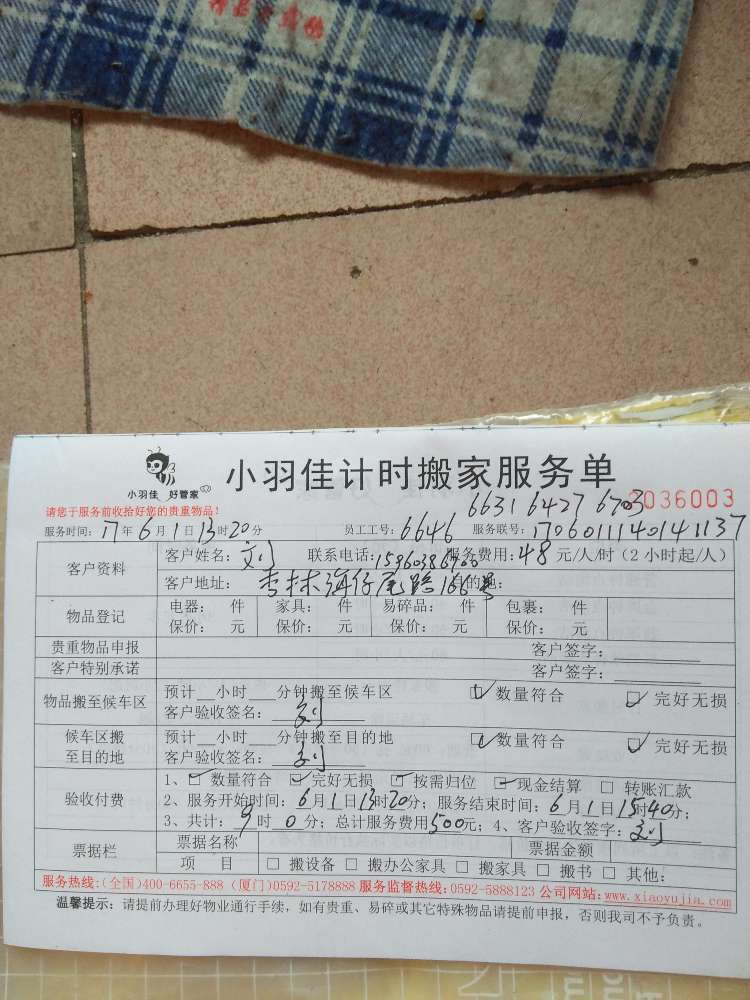 小羽佳 好管家
小羽佳计时搬家服务单
请您于服务前收拾好您的贵重物品!
6631 6427 6703
2036003
服务时间: 17年6月1日13时20分 员工工号: 6646 服务联号: 1706011140141137
客户资料
客户姓名: 刘 联系电话: 服务费用: 48元/人/时(2小时起/人)
客户地址: 杏林海仔尾路166号 目的地:
物品登记
电器: 件 家具: 件 易碎品: 件 包裹: 件
保价: 元 保价: 元 保价: 元 保价: 元
贵重物品申报 客户签字:
客户特别承诺 客户签字:
物品搬至候车区
预计__小时__分钟搬至候车区 ☑数量符合 ☑完好无损
客户验收签名: 刘
候车区搬至目的地
预计__小时__分钟搬至目的地 ☑数量符合 ☑完好无损
客户验收签名: 刘
验收付费
1、☑数量符合 ☑完好无损 ☑按需归位 ☑现金结算 □转账汇款
2、服务开始时间: 6月1日13时20分; 服务结束时间: 6月1日15时40分;
3、共计: 9时0分; 总计服务费用500元; 4、客户验收签字: 刘
票据栏
票据名称 票据金额
项 目 □搬设备 □搬办公家具 □搬家具 □搬书 □其他:
服务热线:(全国)400-6655-888 (厦门)0592-5178888 服务监督热线:0592-5888123 公司网站:www.xiaoyujia.com
温馨提示: 请提前办理好物业通行手续, 如有贵重、易碎或其它特殊物品请提前申报, 否则我司不予负责。